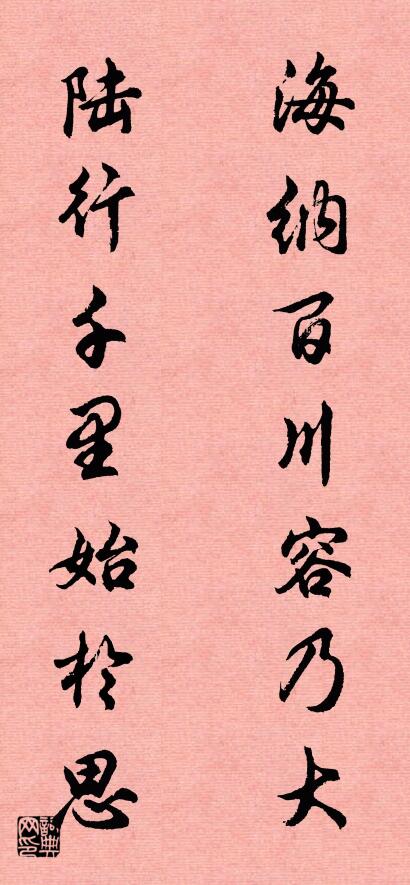 海纳百川容乃大
陆行千里始於思